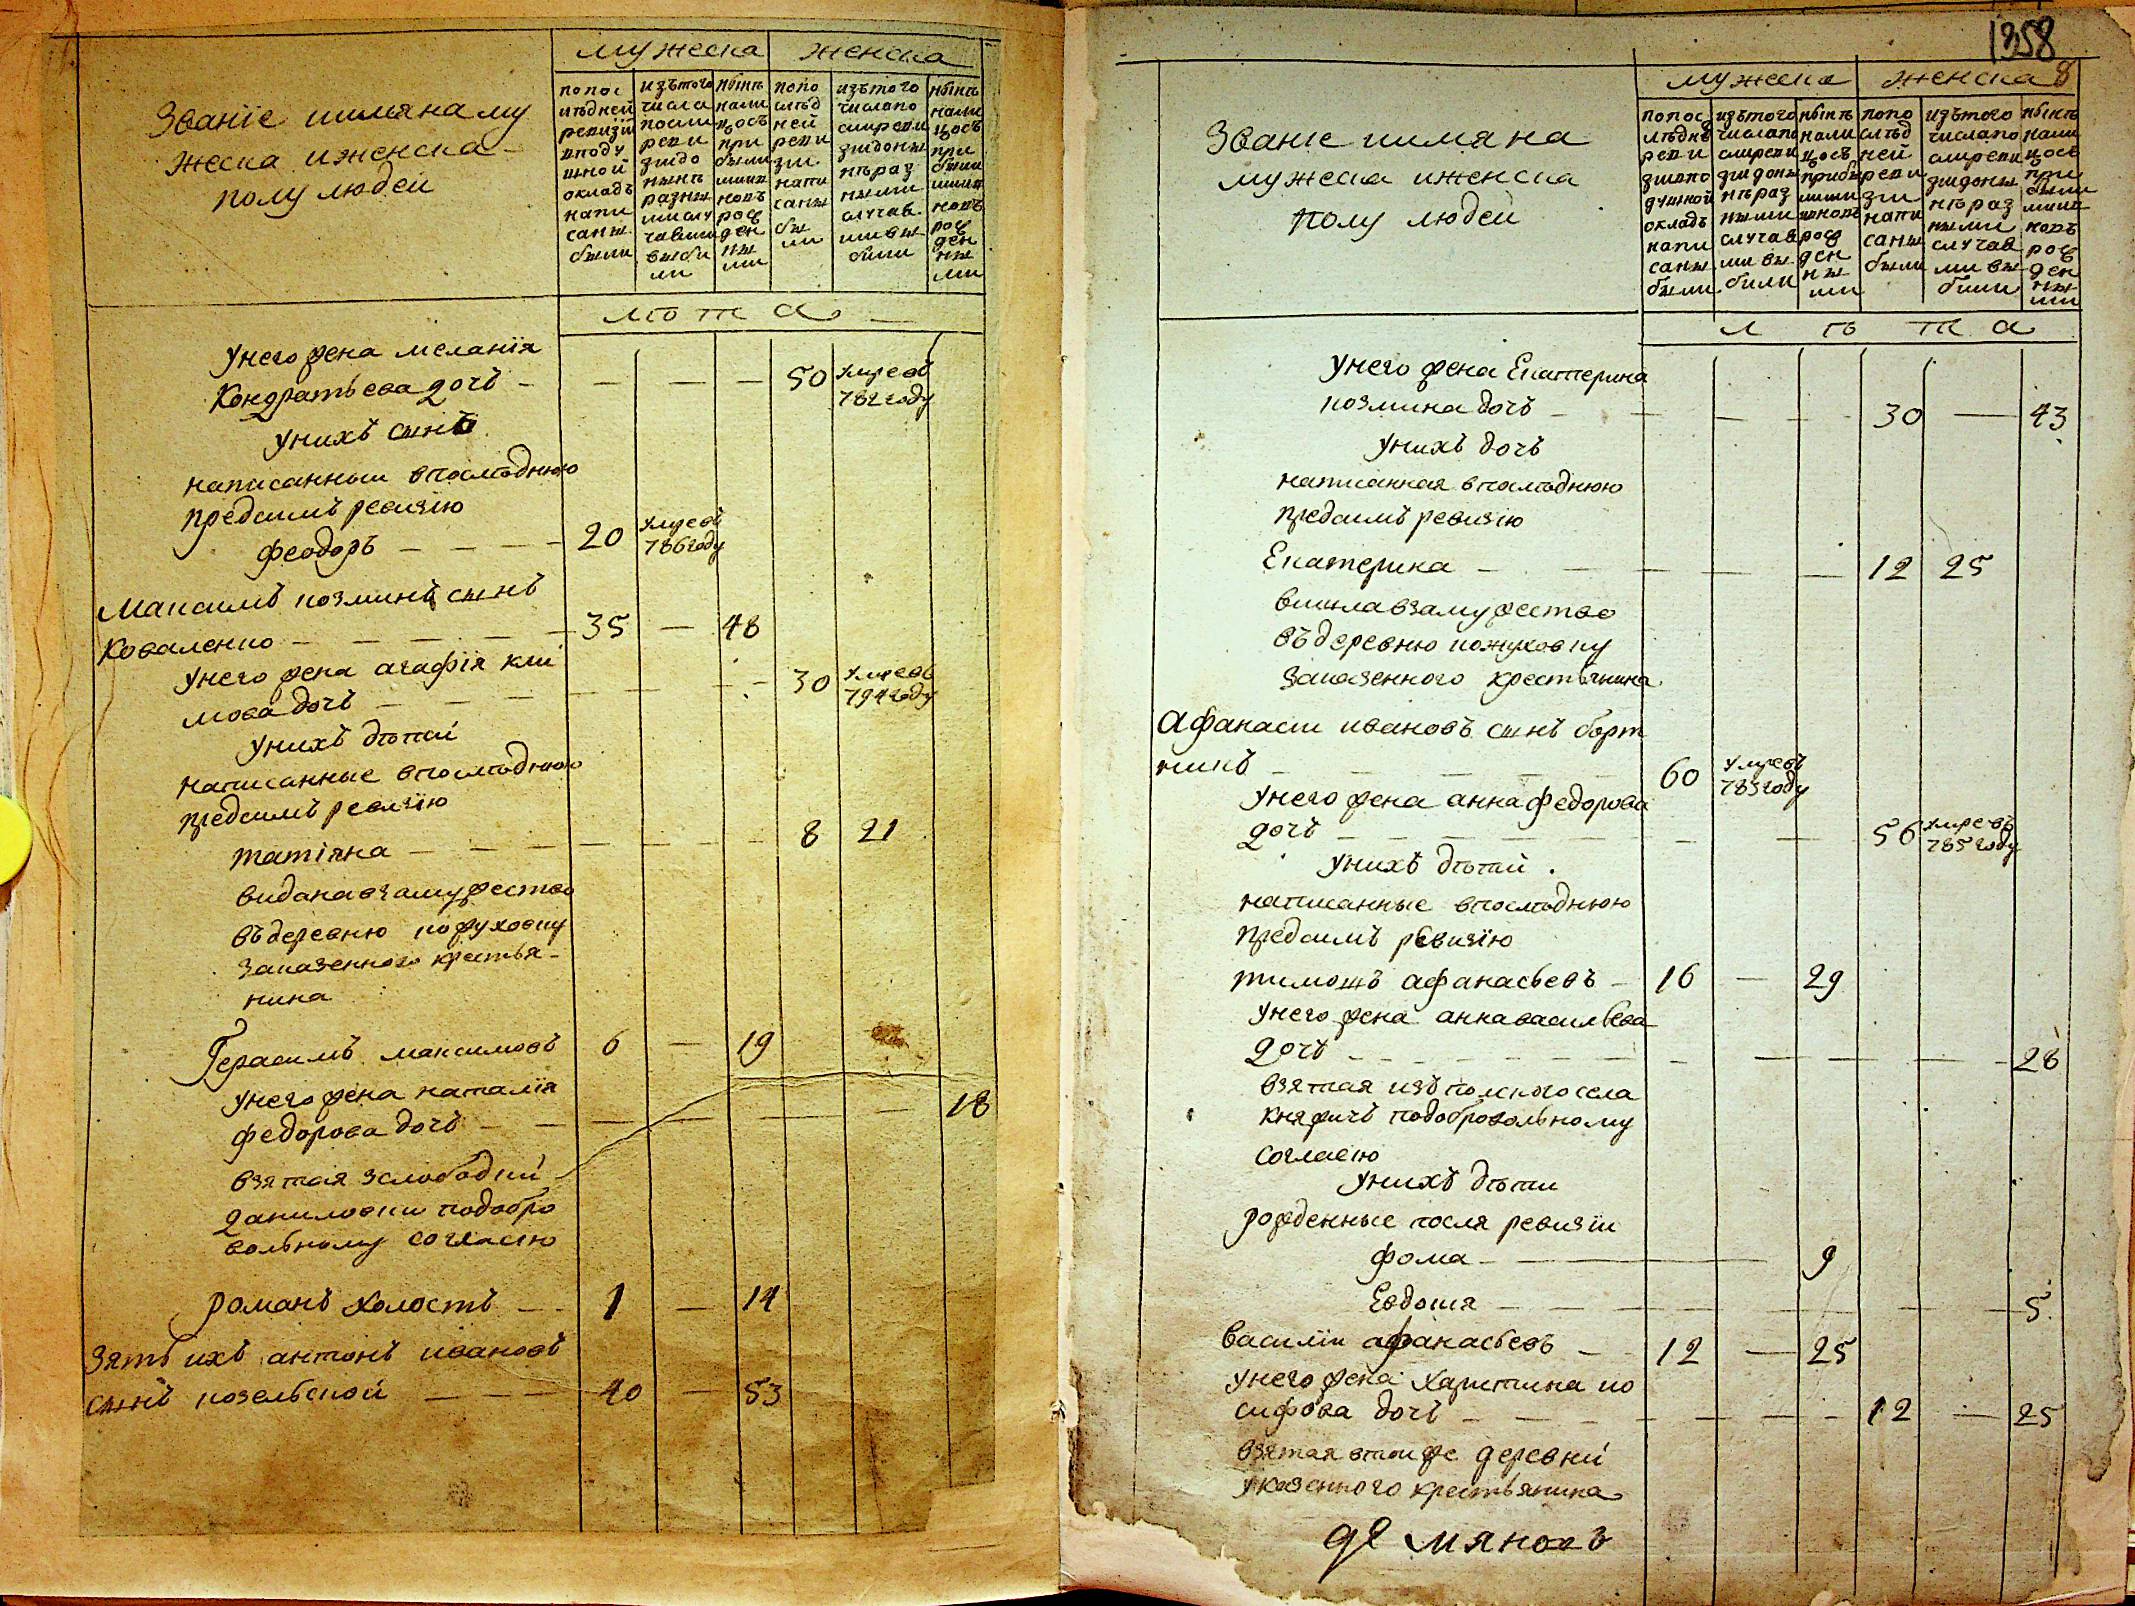 мужеска женска
Званiе иимяна му
жеска иженска
полу людей
попос
лѣдней
ревизiи
вподу
шной
окладъ
напи
саны
были
изътого
числа
посли
реви
зiидо
нынѣ
разны
ми слу
чаями
выбы
ли
нынѣ
нали
цось
при
были
ми и
новъ
рож
ден
ны
ми
попо
слѣд
ней
реви
зiи
напи
саны
бы
ли
изътого
числапо
слиреви
зiидоны
нѣраз
ными
случая
ми вы
были
нынѣ
нали
цось
при
были
ми и
новъ
рож
ден
ны
ми
лѣта
Унего жена меланiя
Кондратьева дочь 50 Умре въ 782 году
Унихъ сынъ
написанныи впослѣднюю
предсимъ ревизiю
Феодоръ 20 Умре въ 786 году
Максимъ козминъ сынъ
Коваленко 35 48
Унего жена агафiя кли
мова дочь 30 Умре въ 794 году
Унихъ дѣтей
написанные впослѣднюю
предсимъ ревизiю
татiяна 8 21
виданавзамужество
въдеревню кожуховку
заказенного крестья-
нина
Герасимъ максимовъ 6 19
Унегожена наталiя
федорова дочь 18
взятая зслободки
даниловки подобро
вольному согласiю
романъ холостъ 1 14
Зять ихъ антонъ ивановъ
сынъ козельской 40 53
1358
8
мужеска женска
Званiе иимяна
мужеска иженска
полу людей
попос
лѣдне
реви
зiипо
душной
окладъ
напи
саны
были
изътого
числапо
слиреви
зiидоны
нѣраз
ными
случая
ми вы
были
нынѣ
нали
цось
прибы
ми и
новъ
рож
ден
ны
ми
попо
слѣд
ней
реви
зiи
напи
саны
были
изътого
числапо
слиреви
зiидоны
нѣраз
ными
случая
ми вы
были
нынѣ
нали
цось
при
были
ми и
новъ
рож
ден
ны
ми
лѣта
Унего жена Екатерина
козмина дочь 30 43
Унихъ дочь
написанная впослѣднюю
предсимъ ревизiю
Екатерина 12 25
вишлавзамужество
въдеревню кожуховку
заказенного крестьянина
Афанасiи ивановъ сынъ борт
никъ 60 Умре въ 783 году
Унего жена анна федорова
дочь 56 Умре въ 785 году
Унихъ дѣтей
написанные впослѣднюю
предсимъ ревизiю
тимошъ афанасьевъ 16 29
Унего жена аннавасильева
дочь 28
взятая изъ полского села
княжичъ подобровольному
согласiю
Унихъ дѣти
рожденные после ревизiи
фома 9
Евдокия 5
василiи афанасьевъ 12 25
Унего жена харитина ио
сифова дочь 12 25
взятая втойже деревни
Указенного крестьянина
демяновъ